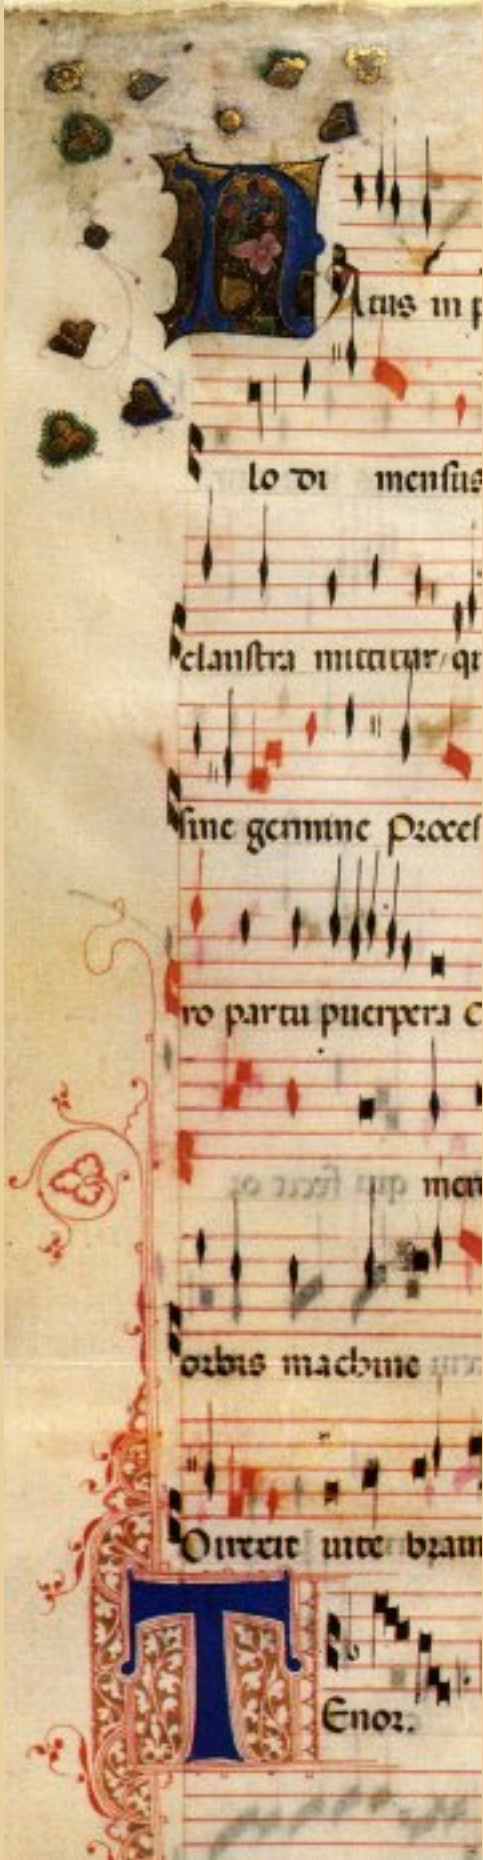 Natus in p
lo di mensus
claustra mittitur / qu
sine germine Proces
ro partu puerpera C
men
orbis machine
Direxit vite bram
TEnor.